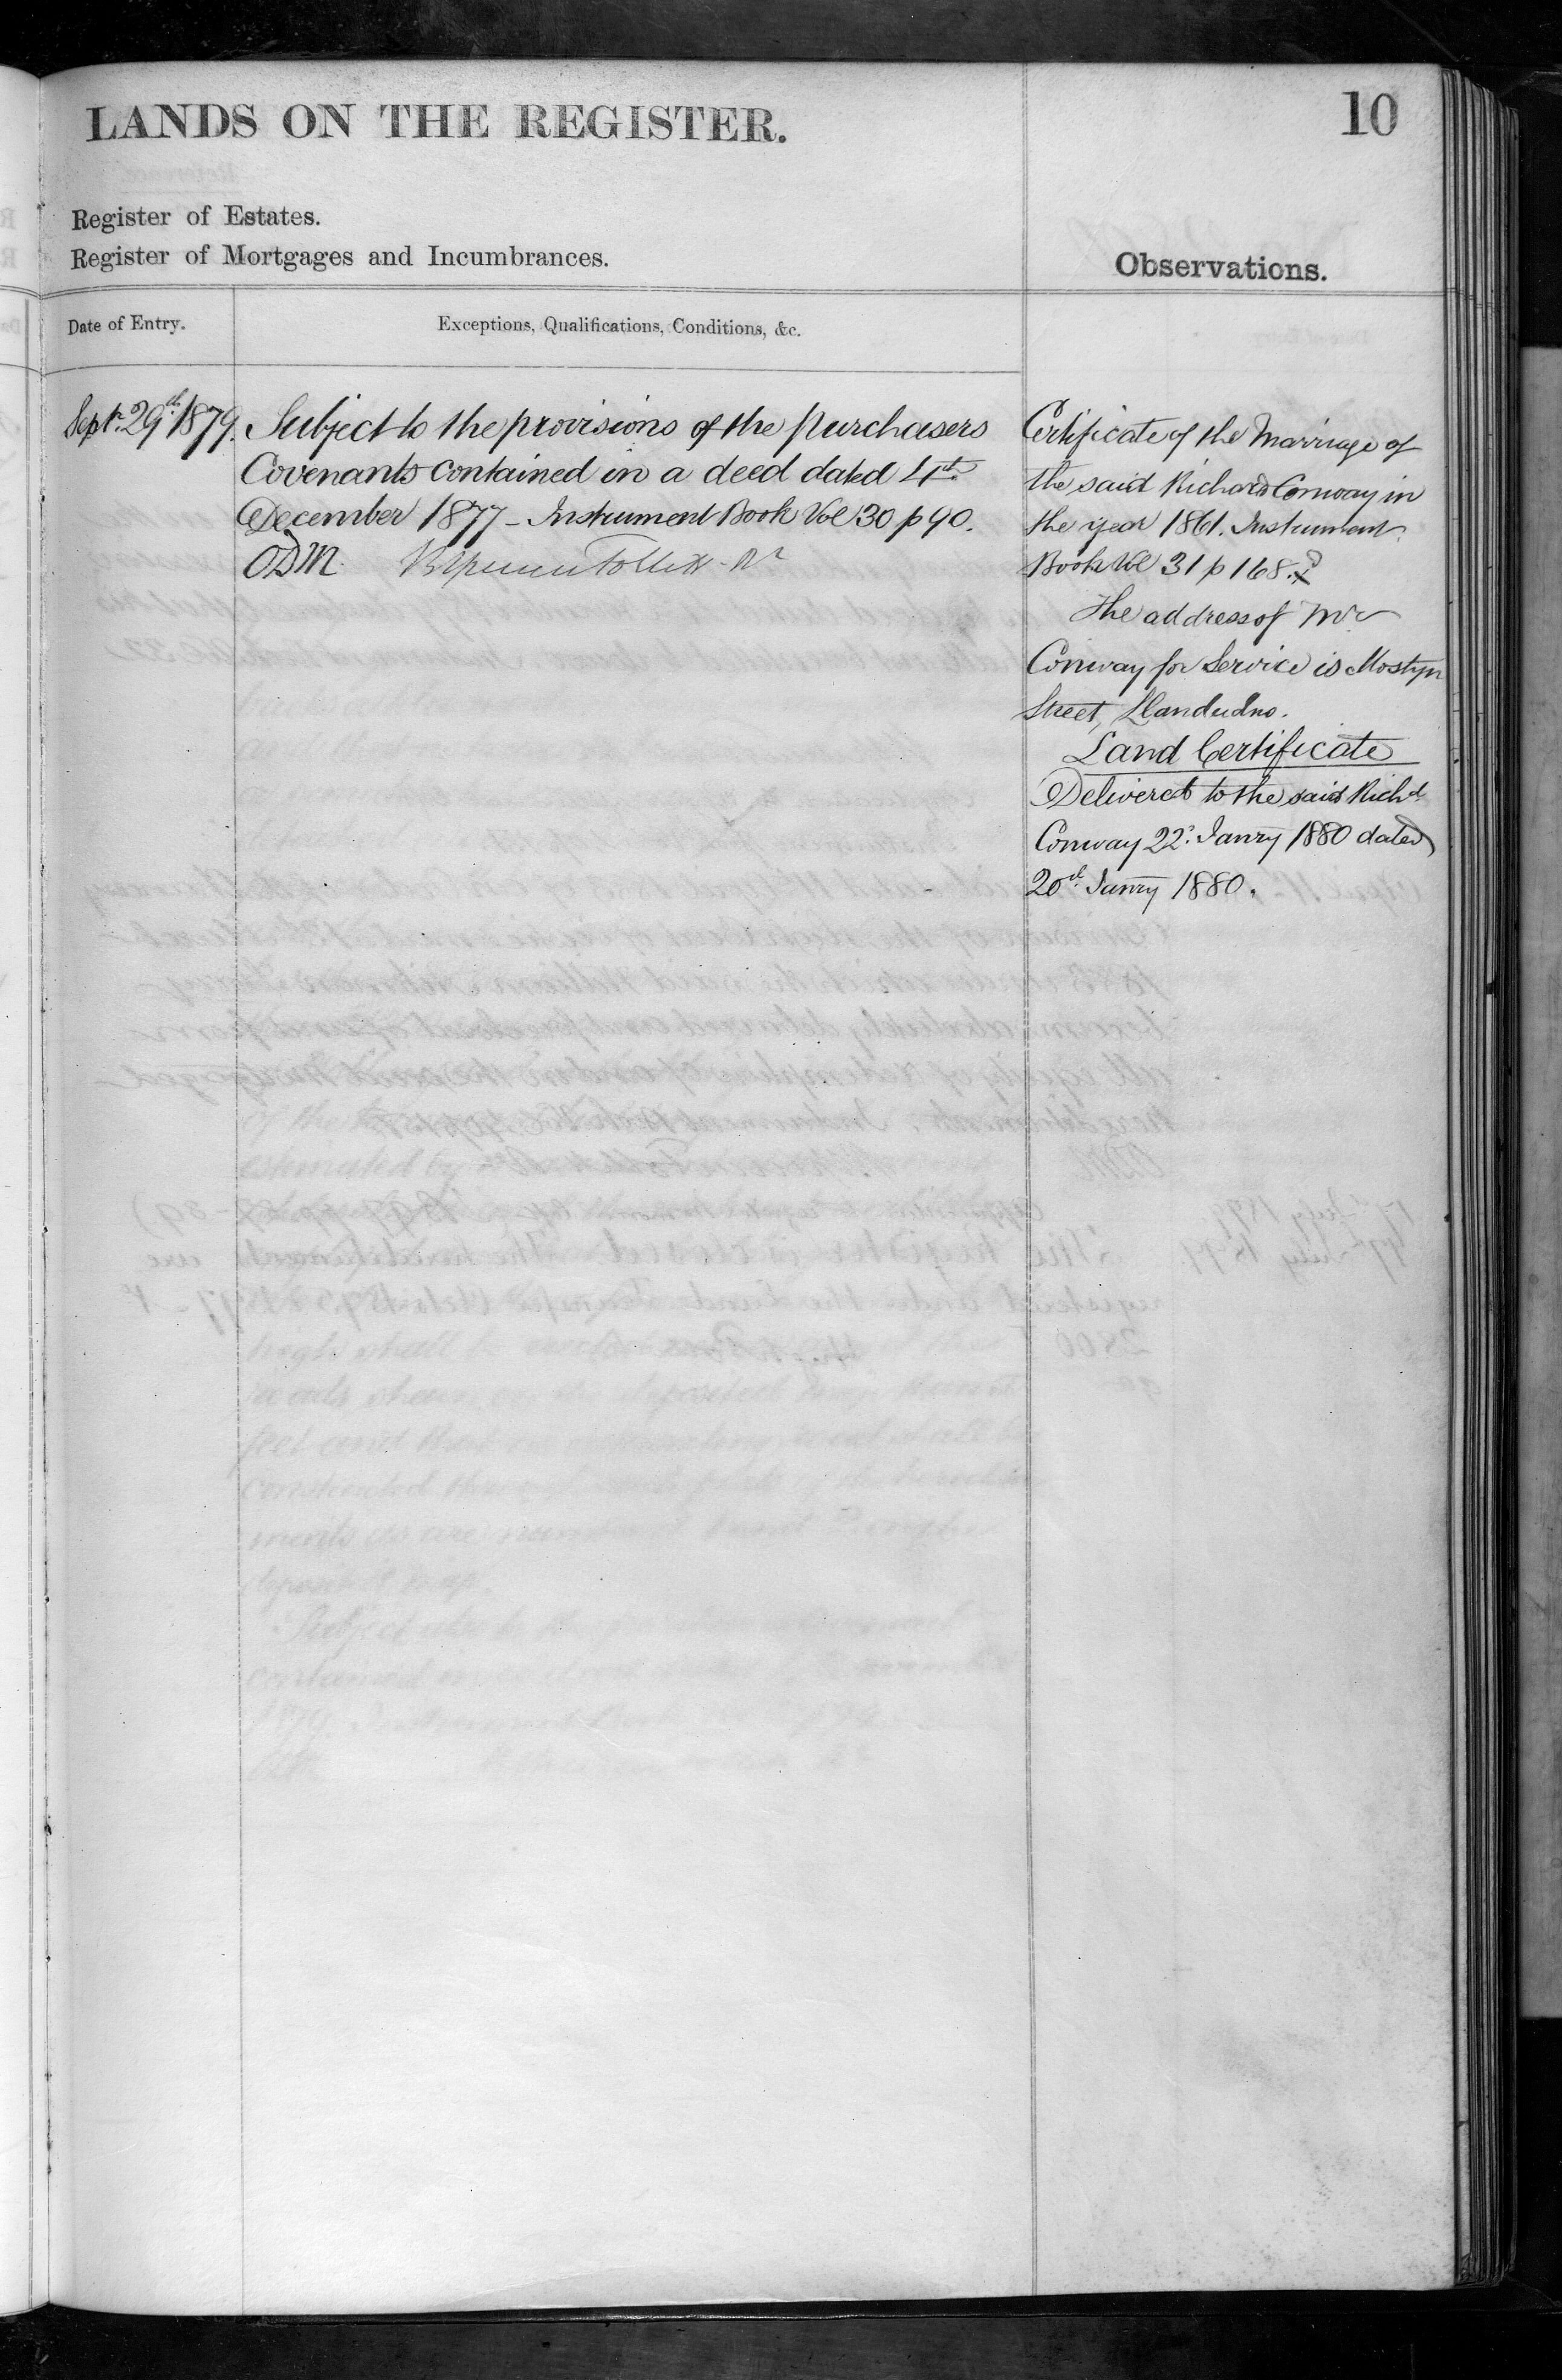 LANDS ON THE REGISTER.
10
Register of Estates.
Register of Mortgages and Incumbrances.
Observations.
Date of Entry.
Exceptions, Qualifications, Conditions, &c.
Septr. 29th 1879.
Subject to the provisions of the purchasers
Covenants contained in a deed dated 4th
December 1877 - Instrument Book Vol 30 p 90.
ODM. Follett
Certificate of the Marriage of
the said Richard Conway in
the year 1861. Instrument
Book Vol 31 p 168.
The address of Mr
Conway for Service is Mostyn
Street, Llandudno.
Land Certificate
Delivered to the said Richd
Conway 22d Janry 1880 dated
20th Janry 1880.